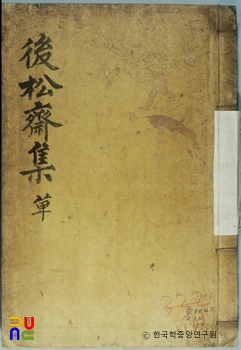 後松齋集 草
ⓒ 한국학중앙연구원